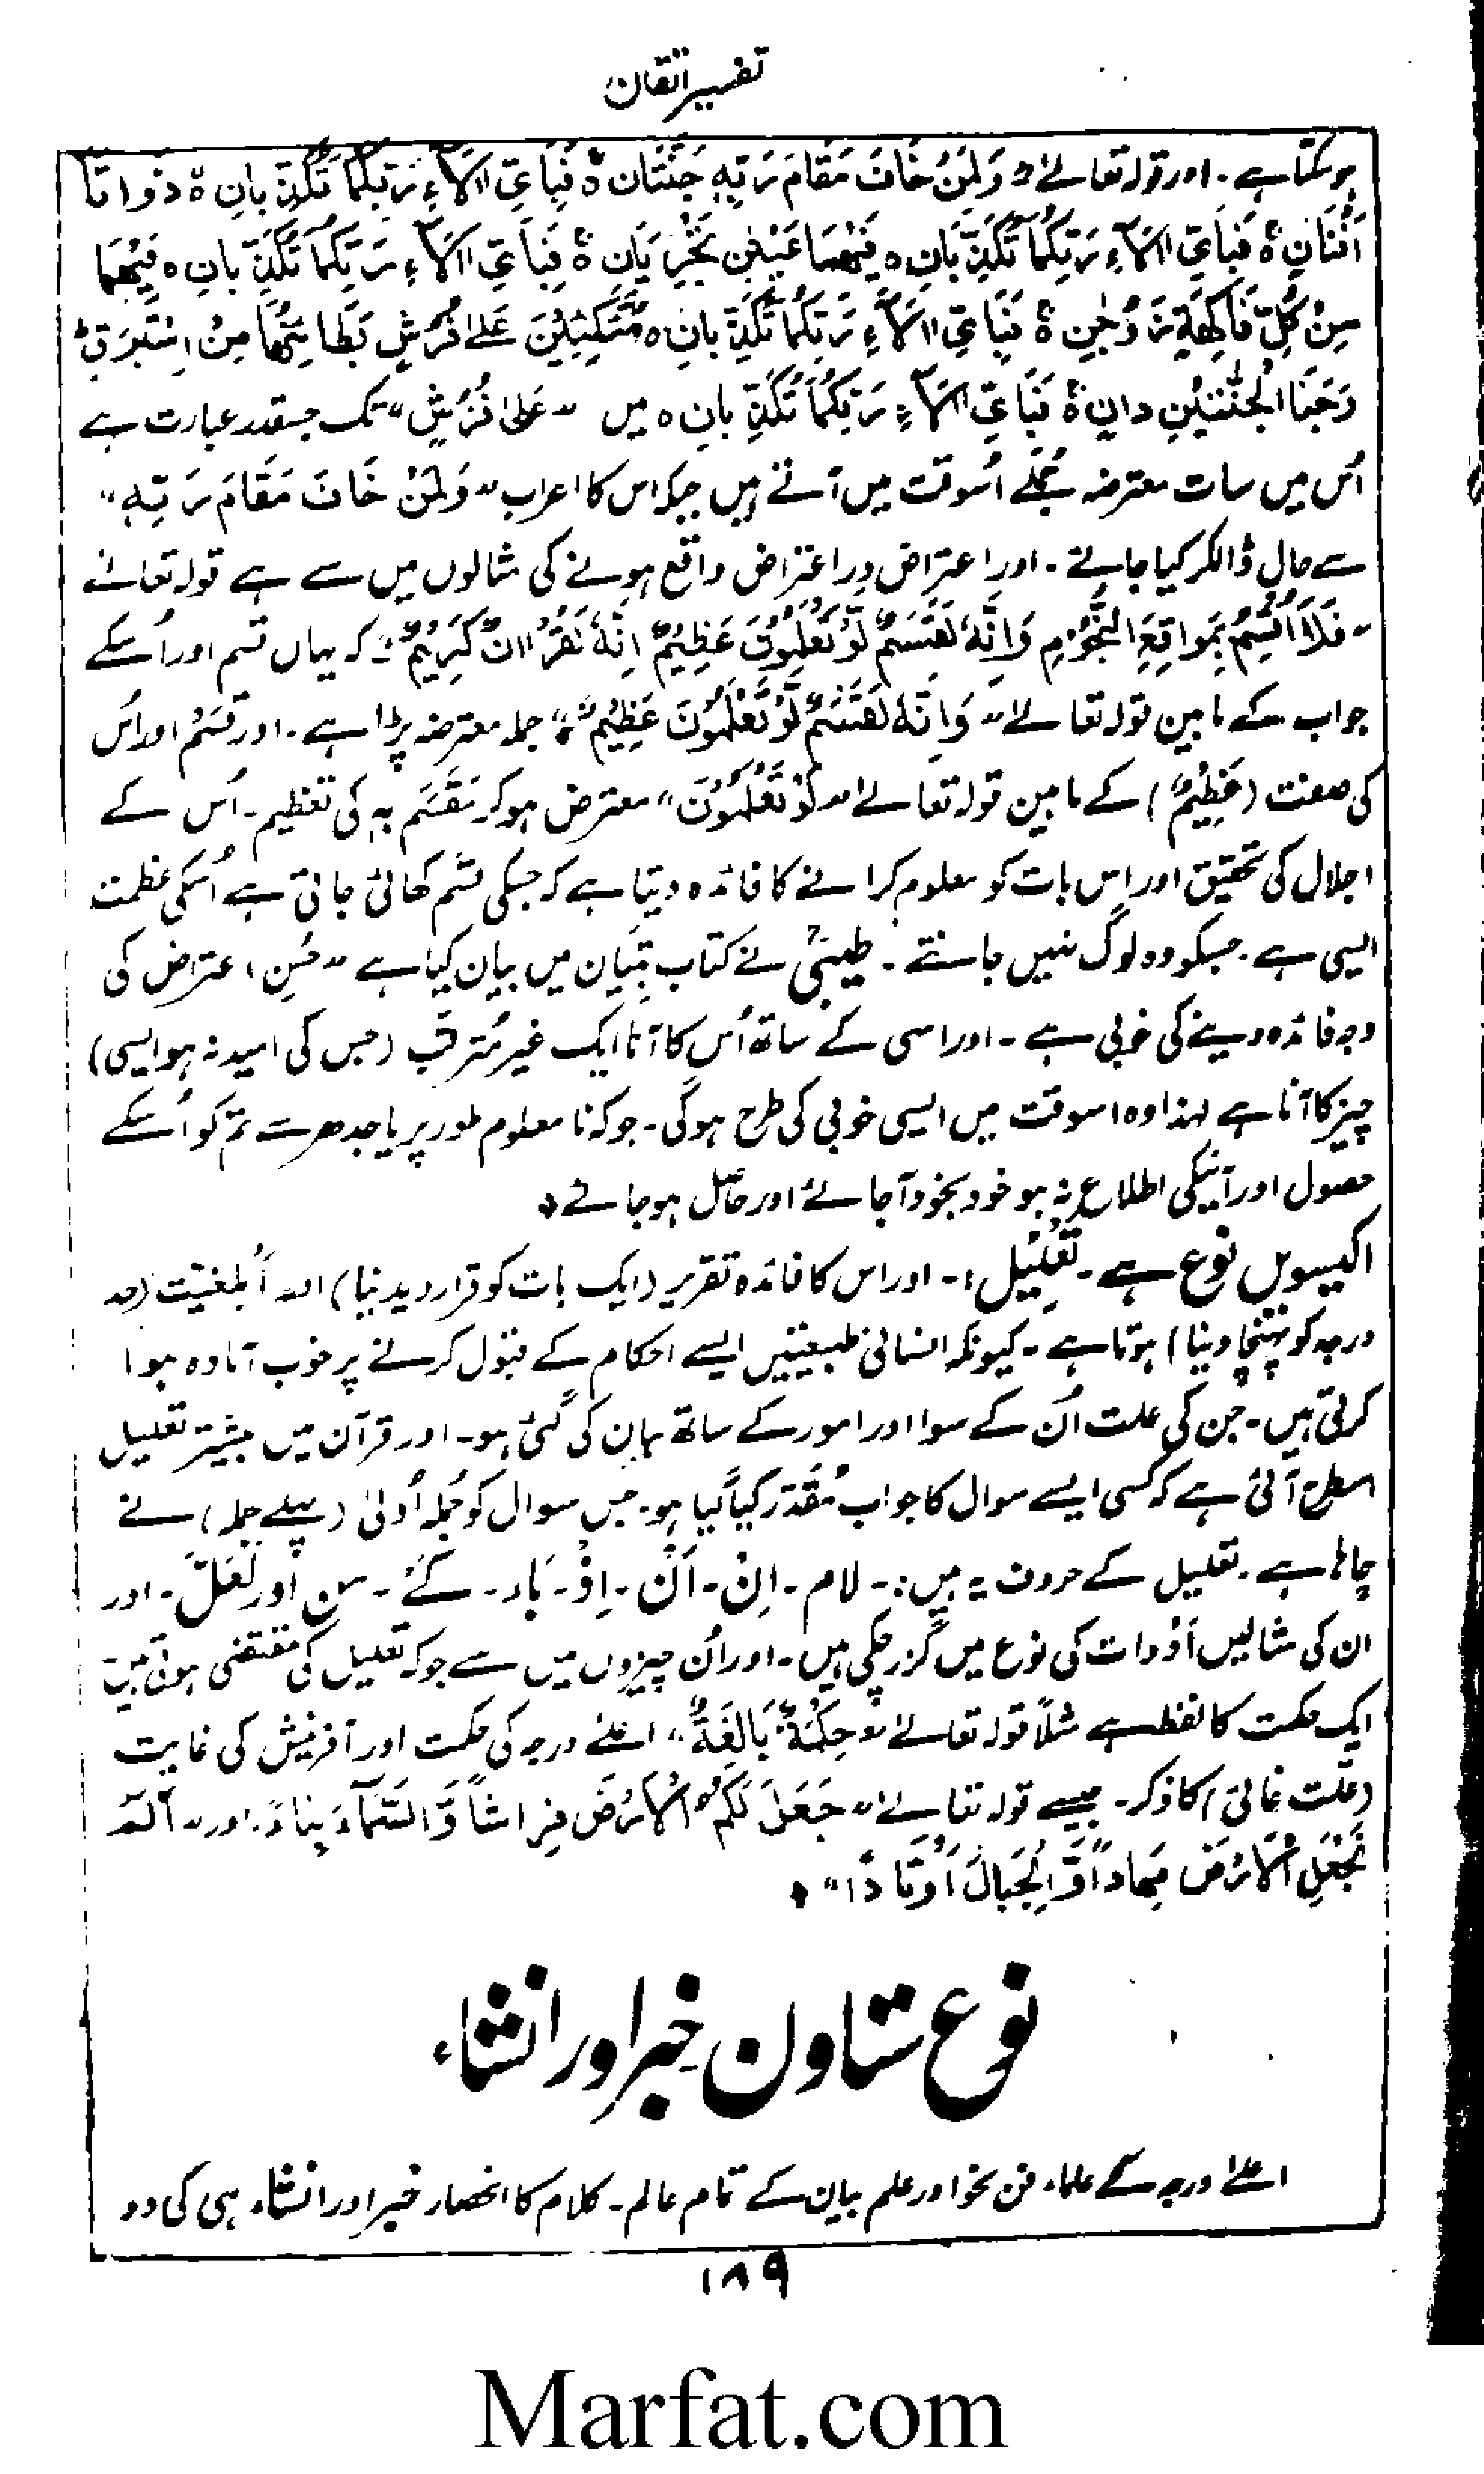 تفسیر اتقان
ہوسکتا ہے۔ اور قولہ تعالےٰ وَلِمَنْ خَافَ مَقَامَ رَبِّهٖ جَنَّتَانِ ۃ فَبِاَیِّ اٰلَآءِ رَبِّكُمَا تُكَذِّبَانِ ۃ ذَوَاتَا
اَفْنَانٍ ۃ فَبِاَیِّ اٰلَآءِ رَبِّكُمَا تُكَذِّبَانِ ہ فِیْهِمَا عَیْنٰنِ تَجْرِیَانِ ۃ فَبِاَیِّ اٰلَآءِ رَبِّكُمَا تُكَذِّبَانِ ہ فِیْهِمَا
مِنْ كُلِّ فَاكِهَةٍ زَوْجٰنِ ۃ فَبِاَیِّ اٰلَآءِ رَبِّكُمَا تُكَذِّبَانِ ہ مُتَّكِئِیْنَ عَلےٰ فُرُشٍ بَطَائِنُهَا مِنْ اِسْتَبْرَقٍ ط
وَجَنَا الْجَنَّتَیْنِ دَانٍ ۃ فَبِاَیِّ اٰلَآءِ رَبِّكُمَا تُكَذِّبَانِ ہ میں "عَلیٰ فُرُشٍ" تک جسقدر عبارت ہے
اُس میں سات معترضہ جُملے اُسوقت میں آتے ہیں جبکہ اس کا اعراب "وَلِمَنْ خَافَ مَقَامَ رَبِّهٖ"
سے حال ڈالکر کیا جائے۔ اور اعتراض در اعتراض واقع ہونے کی مثالوں میں سے ہے قولہ تعالےٰ
"فَلَآ اُقْسِمُ بِمَوَاقِعِ النُّجُوْمِ وَاِنَّهٗ لَقَسَمٌ لَّوْ تَعْلَمُوْنَ عَظِیْمٌ اِنَّهٗ لَقُرْاٰنٌ كَرِیْمٌ" کہ یہاں قسم اور اُسکے
جواب کے مابین قولہ تعالےٰ "وَاِنَّهٗ لَقَسَمٌ لَّوْ تَعْلَمُوْنَ عَظِیْمٌ" جملہ معترضہ پڑا ہے۔ اور قَسَمْ اور اُس
کی صفت (عَظِیْمٌ) کے مابین قولہ تعالےٰ "لَوْ تَعْلَمُوْنَ" معترض ہوکر مُقْسَم بِہٖ کی تعظیم۔ اُس کے
اجلال کی تحقیق اور اس بات کو معلوم کرانے کا فائدہ دیتا ہے کہ جسکی قسم کھائی جاتی ہے اُسکی عظمت
ایسی ہے۔ جسکو وہ لوگ نہیں جانتے۔ طیبیؒ نے کتاب تِبْیَان میں بیان کیا ہے "حُسنِ اعتراض کی
وجہ فائدہ دینے کی خوبی ہے۔ اور اسی کے ساتھ اُس کا آنا ایک غیر مُترقب (جس کی امید نہ ہو ایسی)
چیز کا آنا ہے لہذا وہ اسوقت میں ایسی خوبی کی طرح ہوگی۔ جو کہ نامعلوم طور پر یا جدھر سے تم کو اُسکے
حصول اور آنیکی اطلاع نہ ہو خود بخود آجائے اور حاصل ہوجائے ٭
اکیسویں نوع ہے۔ تعلیل:۔ اور اس کا فائدہ تقریر (ایک بات کو قرار دیدینا) اور اَبلغیّت (حد
درجہ کو پہنچا دینا) ہوتا ہے۔ کیونکہ انسانی طبیعتیں ایسے احکام کے قبول کرنے پر خوب آمادہ ہوا
کرتی ہیں۔ جن کی علت اُن کے سوا اور امور کے ساتھ بیان کی گئی ہو۔ اور قرآن میں بیشتر تعلیل
اسطرح آئی ہے کہ کسی ایسے سوال کا جواب مُقَدّر کیا گیا ہو۔ جس سوال کو جُملہ اُولیٰ (پہلے جملہ) نے
چاہا ہے۔ تعلیل کے حروف یہ ہیں:۔ لام۔ اِنْ۔ اَنْ۔ اِذْ۔ بَاء۔ کَے۔ مِن اور لَعَلَّ۔ اور
ان کی مثالیں اَدَوات کی نوع میں گزر چکی ہیں۔ اور اُن چیزوں میں سے جو کہ تعلیل کی مقتضی ہوتی ہیں
ایک حکمت کا لفظ ہے مثلاً قولہ تعالےٰ "حِكْمَةٌ بَالِغَةٌ" اعلےٰ درجہ کی حکمت اور آفرینش کی غایت
(علّت غائی) کا ذکر۔ جیسے قولہ تعالےٰ "جَعَلَ لَكُمُ الْاَرْضَ فِرَاشًا وَّالسَّمَآءَ بِنَاءً" اور "اَلَمْ
نَجْعَلِ الْاَرْضَ مِهَادًا وَّالْجِبَالَ اَوْتَادًا" ٭
نوع ستاون خبر اور انشاء
اعلےٰ درجہ کے علماء فن نحو اور علم بیان کے تمام عالم۔ کلام کا انحصار خبر اور انشاء ہی کی دو
۱۸۹
Marfat.com